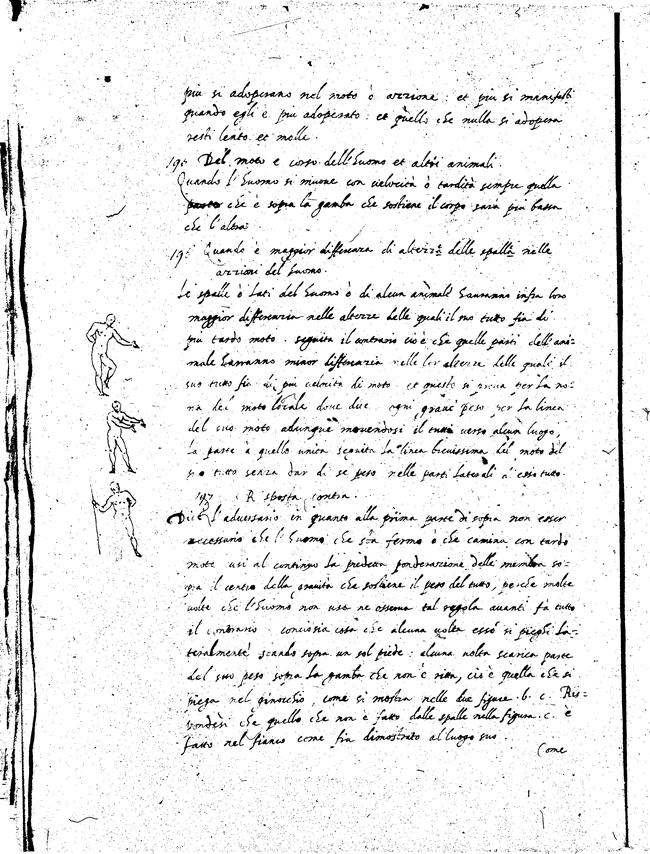 più si adoperano nel moto ò azzione: et più si manifesti
quando egli è più adoperato: et quello che nulla si adopera
resti lento et molle.
195 Del moto e corso dell'huomo et altri animali.
Quando l'huomo si muove con velocità ò tardità sempre quella
parte che è sopra la gamba che sostiene il corpo sarà più bassa
che l'altra.
Quando è maggior differenza di altezza delle spalle nelle
azzioni del huomo.
Le spalle ò lati del huomo ò di alcun animale hauranno infra loro
maggior differenzia nelle altezze delle quali il suo tutto fia di
più tardo moto. seguita il contrario cioè che quelle parti dell'ani-
male hauranno minor differenzia nelle lor altezze delle quali il
suo tutto fia di più velocità di moto. et questo si prova per la no-
na del moto locale dove dice ogni grave pesa per la linea
del suo moto adunque movendosi il tutto verso alcun luogo,
la parte a quello unita seguita la linea brevissima del moto del
suo tutto senza dar di se peso nelle parti laterali d'esso tutto.
197 Risposta contra.
Dice l'adversario in quanto alla prima parte di sopra non esser
necessario che l'huomo che sta fermo ò che camina con tardo
moto usi al continuo la predetta ponderazione delle membra so-
pra il centro della gravità che sostiene il peso del tutto, perche molte
volte che l'huomo non usa ne osserva tal regola avanti fa tutto
il contrario. conciosia cosa che alcuna volta esso si pieghi la-
teralmente stando sopra un sol piede: alcuna volta scarica parte
del suo peso sopra la gamba che non è ritta, cioè quella che si
piega nel ginocchio, come si mostra nelle due figure .b. c. Ris-
pondesi che quello che non è fatto dalle spalle nella figura .c. è
fatto nel fianco come fia dimostrato al luogo suo.
Come